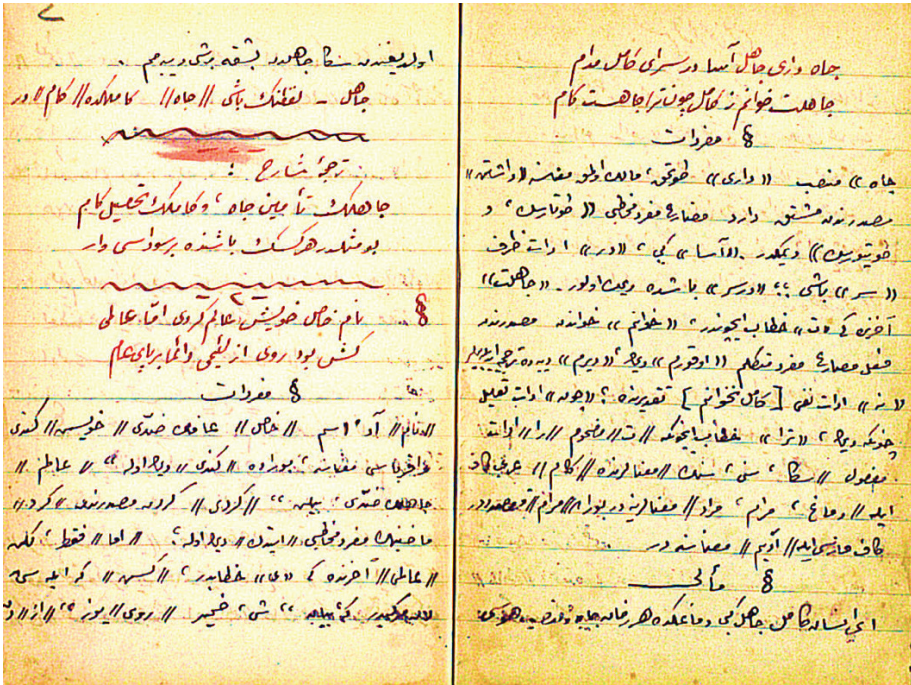 جاه داری جاهل آسا در سرای کامل مدام
جاهلت خوانم نه کامل چون ترا جاهست کام
§ مفردات
جاه» منصب «داری» طوتمق، مالك اولمق معناسنه «داشتن»
مصدرندن مشتق دارد مضارع مفرد مخاطبی «طوتارسك، و
طوتيورسك» ديمكدر. «آسا» كبی، «در» ادات ظرف
«سر» باشی ؛ «درسر» باشده ديمك اولور. «جاهلت»
آخرنده كی «ت» خطاب ايچوندر، «خوانم» خواندن مصدرندن
فعل مضارع مفرد متكلم «اوقورم» ديمك، «ديرم» ديه ترجمه
«نه» ادات نفی [كامل نخوانم] تقديرنده ؛ «چون» ادات تعليل
چونكه ديمك، «ترا» خطاب ايچون «ت» مضموم «را» ادات
مفعول «سكا، سنی، سنك» معنالرينده «كام» عربی كاف
ايله «دماغ، مرام، مراد» معنالرينه در بوراده «مرام» مقصددر
كاف فارسی ايله «آديم» معناسنه در
§ مآلی
ای انسان كامل جاهل كبی دماغكده هر زمان جاه و منصب هوسی
اولديغندن سكا جاهلدن بشقه برشی ديمم.
جاهل - لفظنك باشی «جاه» كاملكده «كام» در
ترجمهٔ شارح :
جاهلك تأمين جاه، و كاملك تحصيل كام
بو مثلدر هركسك باشنده بر سوداسی وار
§ ٢
نام خاص خويش عالم كردی اما عالمی
كش بود روی از لئيمی دائما بر پای عام
§ مفردات
«نام» آد، اسم «خاص» عامك ضدی «خويش» كندی
«عالم»
جاهلك ضدی، بيلن، «كردی» كردن مصدرندن «كرد»
ماضينك مفرد مخاطبی «ايتدك» ديمك اولور، «اما» فقط، لكن
«عالمی» آخرنده كی «ی» خطابدر، «كش» كه ايله شی
شی، ضمير «روی» يوز، «از» دن